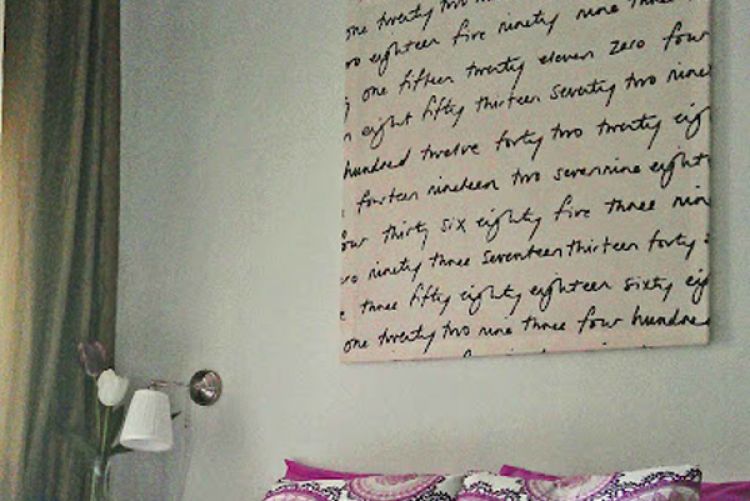 one twenty two
eighteen five ninety nine three
one fifteen twenty eleven zero four
eight fifty thirteen seventy two nine
hundred twelve forty two twenty eig
fourteen nineteen two seven nine eight
our thirty six eighty five three nin
ro ninety three seventeen thirteen forty
e three fifty eighty eighteen sixty eig
one twenty two nine three four hundred